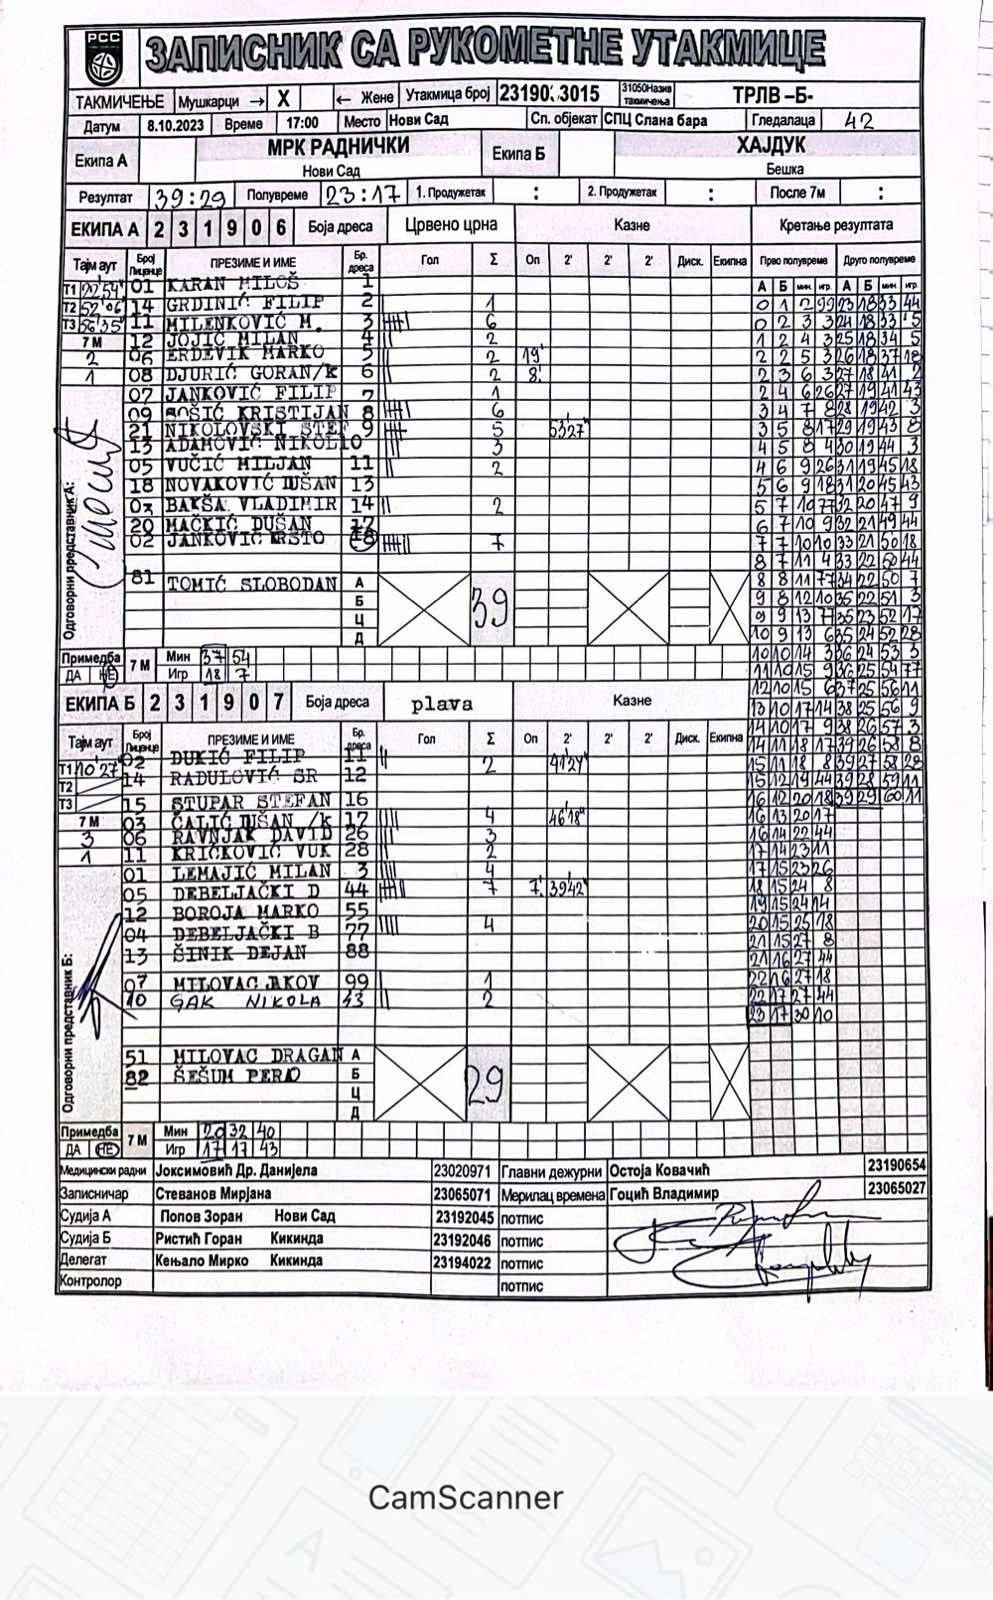 РСС
ЗАПИСНИК СА РУКОМЕТНЕ УТАКМИЦЕ
ТАКМИЧЕЊЕ Мушкарци → X ← Жене Утакмица број 23190. 3015 31050Назив такмичења ТРЛВ –Б-
Датум 8.10.2023 Време 17:00 Место Нови Сад Сп. објекат СПЦ Слана бара Гледалаца 42
Екипа А МРК РАДНИЧКИ Екипа Б ХАЈДУК
Нови Сад Бешка
Резултат 39:29 Полувреме 23:17 1. Продужетак : 2. Продужетак : После 7м :
ЕКИПА А 2 3 1 9 0 6 Боја дреса Црвено црна Казне Кретање резултата
Тајм аут Број Лиценце ПРЕЗИМЕ И ИМЕ Бр. дреса Гол Σ Оп 2' 2' 2' Диск. Екипна Прво полувреме Друго полувреме
А Б мин. игр. А Б мин. игр.
T1 22'54" 01 KARAN MILOŠ 1
T2 52'06" 14 GRDINIĆ FILIP 2 1
T3 56'35" 11 MILENKOVIĆ M. 3 6
7 М 12 JOJIĆ MILAN 4 2
2 06 ERDEVIK MARKO 5 2 19'
1 08 DJURIĆ GORAN/k 6 2 8'
07 JANKOVIĆ FILIP 7 1
09 SOŠIĆ KRISTIJAN 8 6
21 NIKOLOVSKI STEF 9 5 53'27"
13 ADAMOVIĆ NIKOL 10 3
05 VUČIĆ MILJAN 11 2
18 NOVAKOVIĆ DUŠAN 13
03 BAKŠA VLADIMIR 14 2
20 MAČKIĆ DUŠAN 17
02 JANKOVIĆ KRSTO 18 7
81 TOMIĆ SLOBODAN А 39
Б
Ц
Д
Одговорни представник А:
Примедба ДА НЕ 7 М Мин 37 54
Игр 18 7
0 1 2 99 23 18 33 44
0 2 3 3 24 18 33 5
1 2 4 3 25 18 34 5
2 2 5 3 26 18 37 18
2 3 6 3 27 18 41 2
2 4 6 26 27 19 41 43
3 4 7 8 28 19 42 3
3 5 8 17 29 19 43 8
4 5 8 4 30 19 44 3
4 6 9 26 31 19 45 18
5 6 9 18 31 20 45 43
5 7 10 77 32 20 47 9
6 7 10 9 32 21 49 44
7 7 10 10 33 21 50 18
8 7 11 4 33 22 50 44
8 8 11 77 34 22 50 7
9 8 12 10 35 22 51 3
9 9 13 77 35 23 52 17
10 9 13 6 35 24 52 28
10 10 14 3 36 24 53 3
11 10 15 9 36 25 54 77
12 10 15 6 37 25 56 11
13 10 17 14 38 25 56 9
14 10 17 9 38 26 57 3
14 11 18 17 39 26 58 8
15 11 18 8 39 27 58 28
15 12 19 44 39 28 59 11
16 12 20 18 39 29 60 11
16 13 20 17
16 14 22 44
17 14 23 11
17 15 23 26
18 15 24 8
19 15 24 14
20 15 25 18
21 15 27 8
21 16 27 44
22 16 27 18
22 17 27 44
23 17 30 10
ЕКИПА Б 2 3 1 9 0 7 Боја дреса plava Казне
Тајм аут Број Лиценце ПРЕЗИМЕ И ИМЕ Бр. дреса Гол Σ Оп 2' 2' 2' Диск. Екипна
T1 10'27" 02 DUKIĆ FILIP 11 2 41'27"
T2 14 RADULOVIĆ SR 12
T3 15 STUPAR STEFAN 16
7 М 03 ĆALIĆ DUŠAN /k 17 4 46'18"
3 06 RAVNJAK DAVID 26 3
1 11 KRIČKOVIĆ VUK 28 2
01 LEMAJIĆ MILAN 3 4
05 DEBELJAČKI D 44 7 7' 39'42"
12 BOROJA MARKO 55
04 DEBELJAČKI B 77 4
13 ŠINIK DEJAN 88
07 MILOVAC AKOV 99 1
10 GAK NIKOLA 43 2
51 MILOVAC DRAGAN А 29
82 ŠEŠUM PERO Б
Ц
Д
Одговорни представник Б:
Примедба ДА НЕ 7 М Мин 20 32 40
Игр 17 17 43
Медицински радни Јоксимовић Др. Данијела 23020971 Главни дежурни Остоја Ковачић 23190654
Записничар Стеванов Мирјана 23065071 Мерилац времена Гоцић Владимир 23065027
Судија А Попов Зоран Нови Сад 23192045 потпис
Судија Б Ристић Горан Кикинда 23192046 потпис
Делегат Кењало Мирко Кикинда 23194022 потпис
Контролор потпис
CamScanner